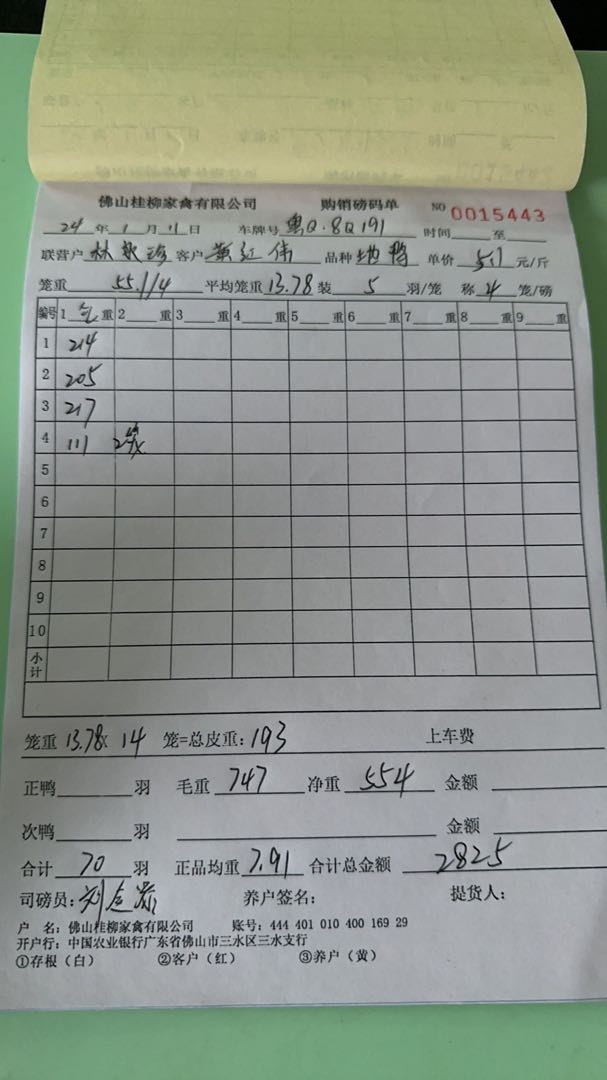 佛山桂柳家禽有限公司 购销磅码单 NO 0015443
24 年 1 月 11 日 车牌号 粤Q·8Q191 时间 至
联营户 林 客户 黄红伟 品种 鸭 单价 5.1 元/斤
笼重 55.1/4 平均笼重 13.78 装 5 羽/笼 称 4 笼/磅
编号 1 毛 重 2 重 3 重 4 重 5 重 6 重 7 重 8 重 9 重
1 214
2 205
3 217
4 111
5
6
7
8
9
10
小计
笼重 13.78× 14 笼=总皮重: 193 上车费
正鸭 羽 毛重 747 净重 554 金额
次鸭 羽 金额
合计 70 羽 正品均重 7.91 合计总金额 2825
司磅员: 刘 养户签名: 提货人:
户 名: 佛山桂柳家禽有限公司 账号: 444 401 010 400 169 29
开户行: 中国农业银行广东省佛山市三水区三水支行
①存根(白) ②客户(红) ③养户(黄)